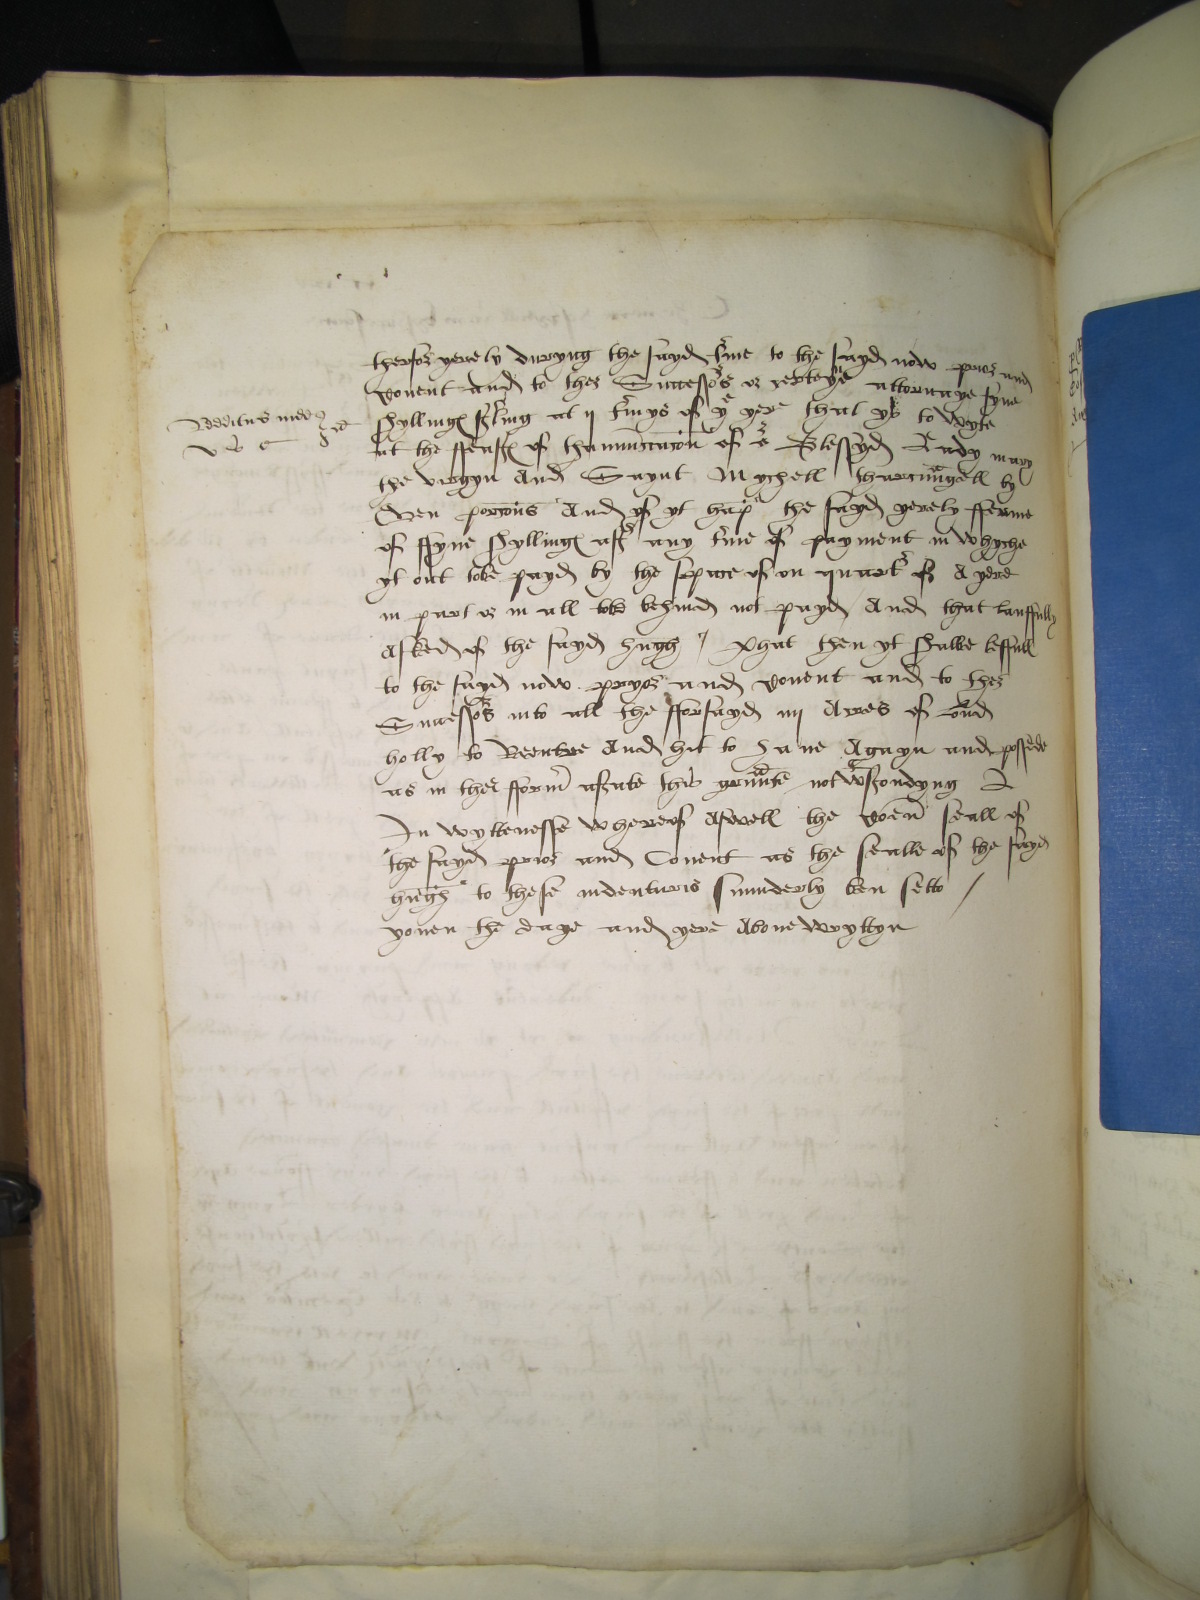 therfor yerely duryng the sayd t'me to the sayd now prior and
Covent and to ther Successors or certeyn attornaye fyve
shyllings st'ling at ij t'mys of ye yere that ys to wyte
at the ffeast of thannunciacion of ye Blessyd Lady mary
the virgyn And Saynt Mychell tharcangell by
Even porcions And yf yt hap the sayd yerely fferme
of ffyve shyllings aft' any t'me of payment in Whyche
yt owt tobe payd by the space of on quart' of A yere
in part or in all tobe behind not payd And that lauffully
Asked of the sayd hugh / That then yt shalbe leffull
to the sayd now pryor and Covent and to ther
Successors into all the fforsayd iiij Acres of lond
holly to Reentre And hit to have Agayn and possede
as in ther form' astate this graunte not wtstondyng
In wyttenesse wherof Aswell the Coen seall of
the sayd prior and Covent as the sealle of the sayd
hugh to these indenturis sunderly ben sette /
yoven the daye and yere Above wryttyn
Redditus inde
v s